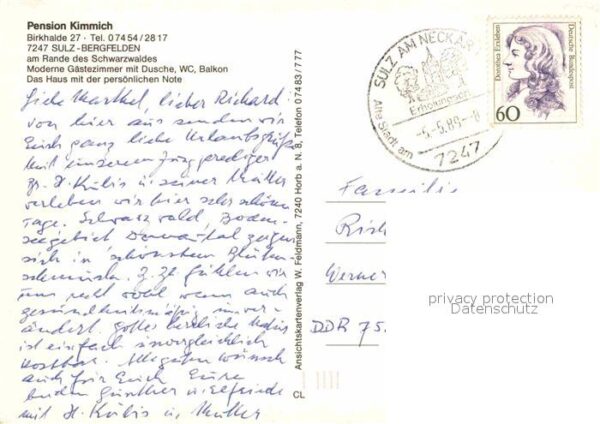 Pension Kimmich
Birkhalde 27 · Tel. 0 74 54 / 28 17
7247 SULZ-BERGFELDEN
am Rande des Schwarzwaldes
Moderne Gästezimmer mit Dusche, WC, Balkon
Das Haus mit der persönlichen Note
Liebe Marthel, lieber Richard!
von hier aus senden wir
Euch ganz liebe Urlaubsgrüße
Mit unserem
Br. H. Külis u. seiner Mutter
verleben wir hier sehr schöne
Tage. Schwarzwald, Boden-
seegebiet, Donautal zeigen
sich in schönstem Blüten-
schmuck. Z. Zt. fühlen wir
uns recht wohl wenn auch
gesundheitsmäßig unver-
ändert. Gottes herrliche Natur
ist einfach unvergleichlich
kostbar. Alles Gute wünschen
auch für Euch Eure
beiden Günther u. Elfriede
mit H. Külis u. Mutter
Ansichtskartenverlag W. Feldmann, 7240 Horb a. N. 8, Telefon 0 74 83/7 77
CL
SULZ AM NECKAR
Erholungsort
Alte Stadt am
-5.-5.89-
7247
Dorothea Erxleben
Deutsche Bundespost
60
Familie
Rich
Werner
DDR 75
privacy protection
Datenschutz